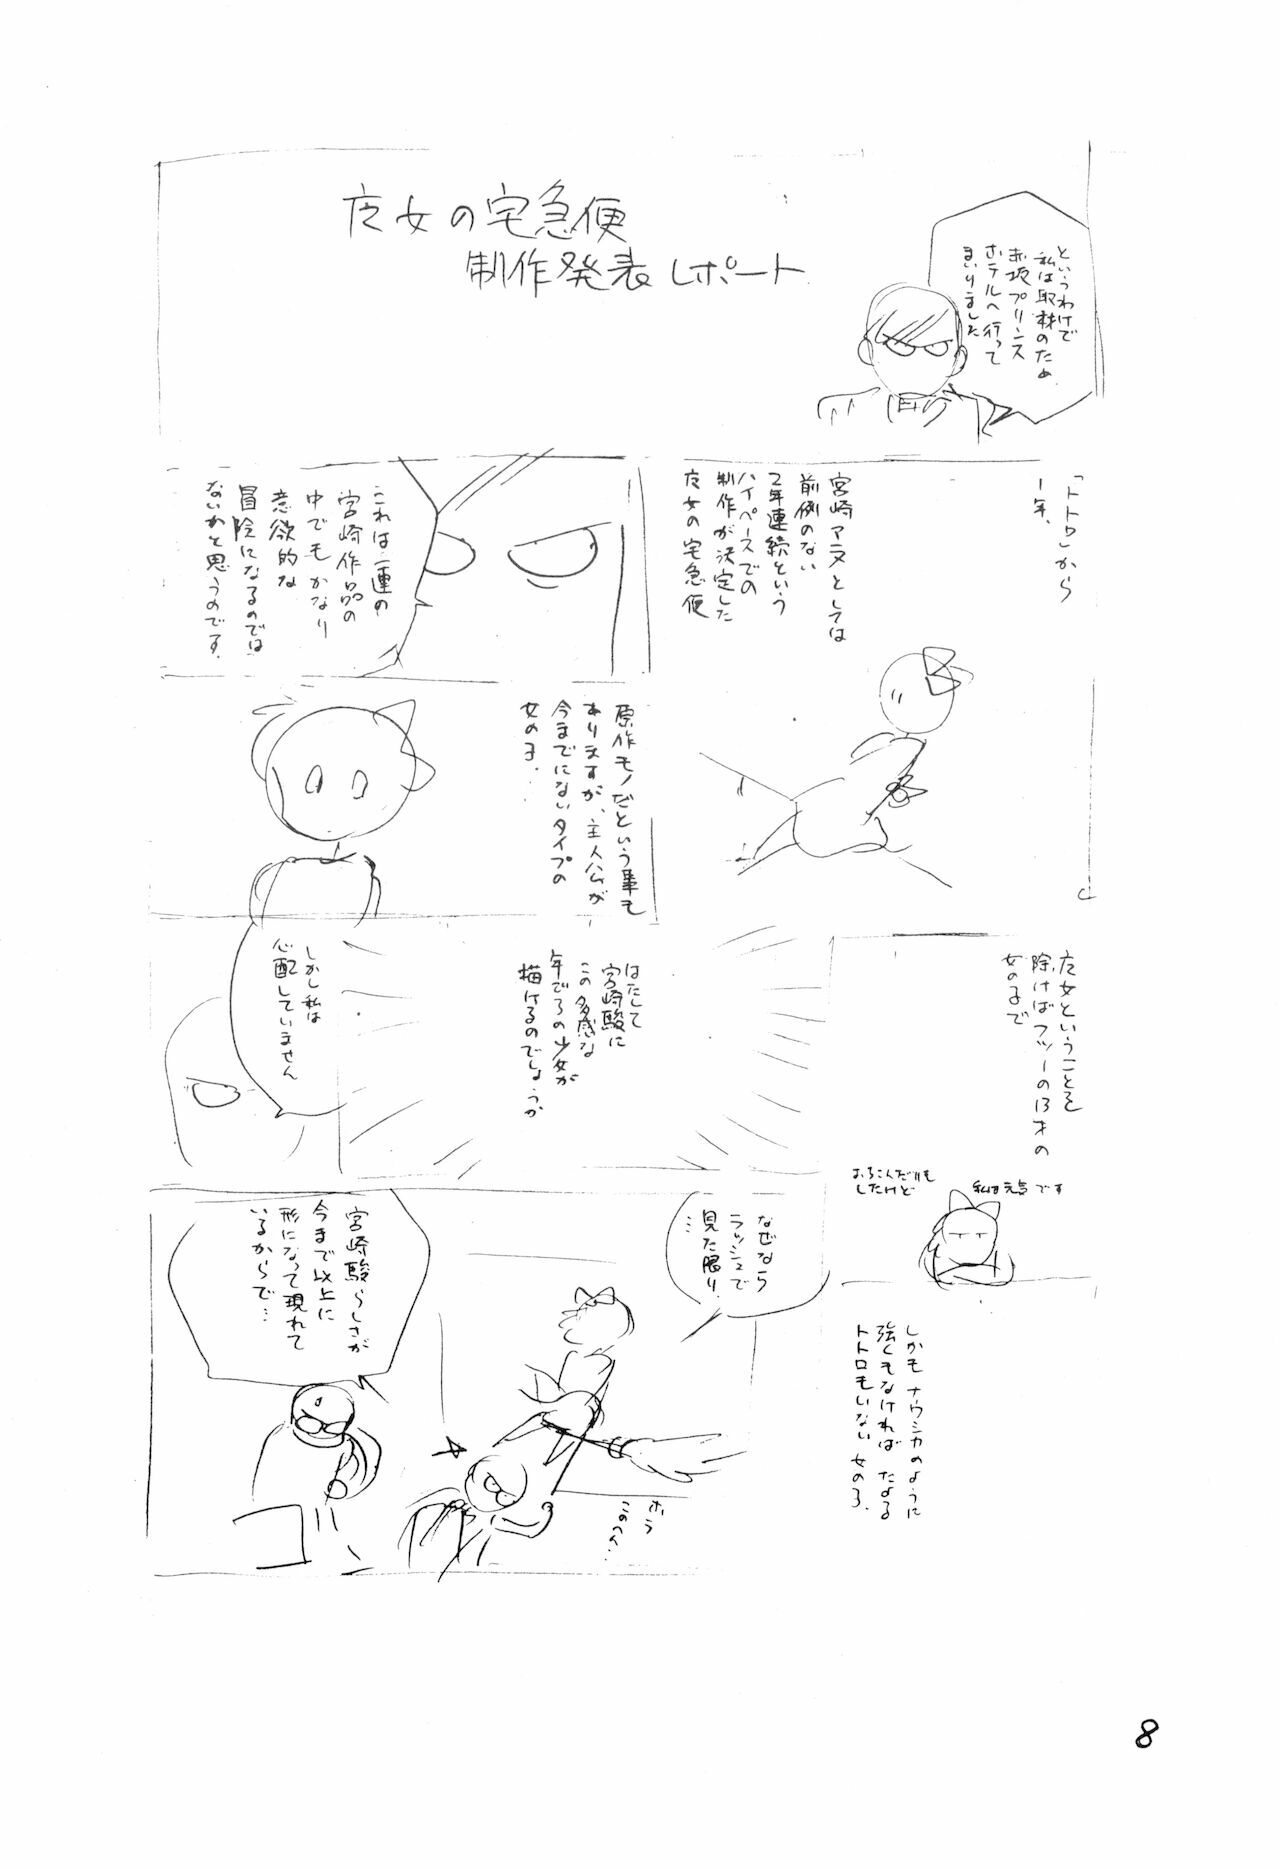 广女の宅急便
制作発表レポート
というわけで
私は取材のため、
赤坂プリンス
ホテルへ行って
まいりました
「トトロ」から
1年、
宮崎アニメとしては
前例のない
2年連続という
ハイペースでの
制作が決定した
广女の宅急便
これは一連の
宮崎作品の
中でもかなり
意欲的な
冒険になるのでは
ないかと思うのです。
原作モノだという事も
ありますが、主人公が
今までにないタイプの
女の子。
广女ということを
除けばフツーの13才の
女の子で
おちこんだりも
したけど
私は元気です
しかもナウシカのように
強くもなければたよる
トトロもいない女の子。
はたして
宮崎駿に
この多感な
年ごろの少女が
描けるのでしょうか
しかし私は
心配していません
なぜなら
ラッシュで
見た限り、
…
ホラ
このへん…
宮崎駿らしさが
今まで以上に
形になって現れて
いるからで…
8